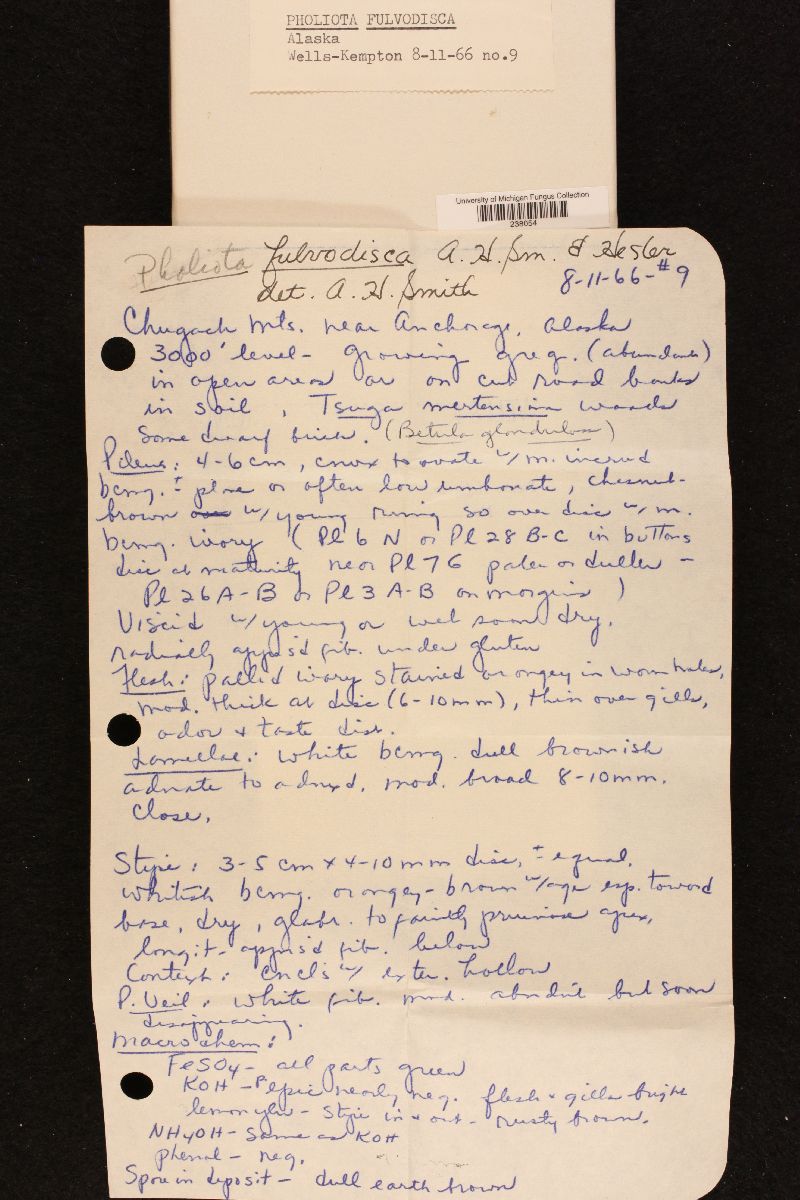 PHOLIOTA FULVODISCA
Alaska
Wells-Kempton 8-11-66 no.9
University of Michigan Fungus Collection
238054
Pholiota fulvodisca A. H. Sm. & Hesler
det. A. H. Smith 8-11-66-#9
Chugach Mts. near Anchorage, Alaska
3000' level- growing greg. (abundant)
in open areas or on cut road banks
in soil, Tsuga mertensiana woods
some dwarf birch. (Betula glandulosa)
Pileus: 4-6 cm, cnvx to ovate w/ m. incrvd
bcmg. ± plane or often low umbonate, chesnut-
brown w/ young rming so over disc w/ m.
bcmg. ivory (Pl 6 N or Pl 28 B-C in buttons
disc at maturity near Pl 7 G paler or duller -
Pl 26 A-B or Pl 3 A-B on margins)
Viscid w/ young or wet soon dry,
radially apprs'd fib. under gluten
Flesh: pallid ivory stained orangey in worm holes,
mod. thick at disc (6-10mm), thin over gills,
odor & taste dist.
Lamellae: white bcmg. dull brownish
adnate to adnxd, mod. broad 8-10mm.
close,
Stipe: 3-5 cm x 4-10 mm diam, ± equal,
whitish bcmg. orangey-brown w/age esp. toward
base, dry, glabr. to faintly pruinose apex,
longit- apprs'd fib. below
Context: w/ hollow
P. Veil: white fib. mod. abndnt but soon
disappearing.
Macrochem:
FeSO4 - all parts green
KOH - nearly neg. flesh & gills bright
lemon ylw - stipe in & out - rusty brown.
NH4OH - same as KOH
phenol - neg.
Spore in deposit - dull earth brown